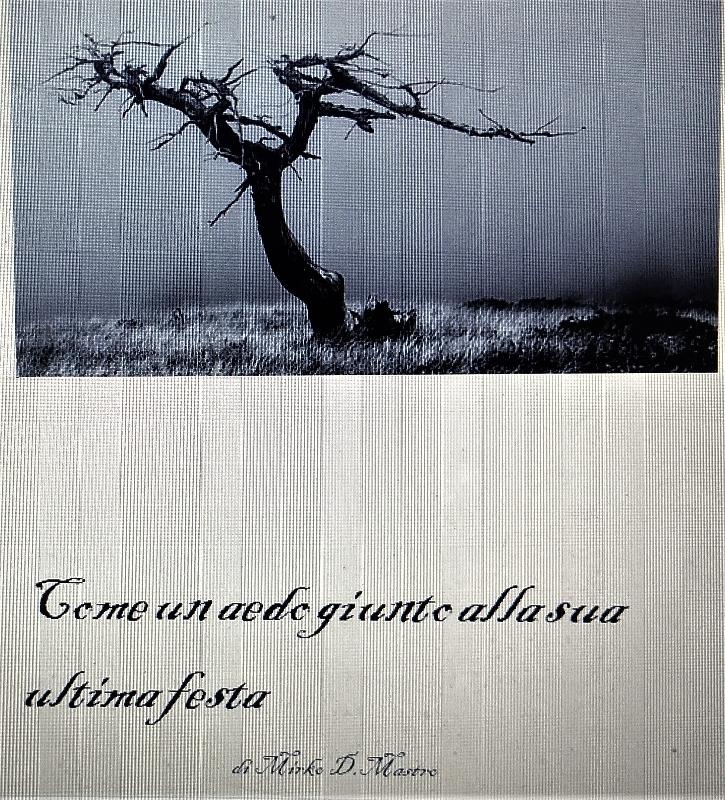 Come un aedo giunto alla sua
ultima festa
di Mirko D. Mastro